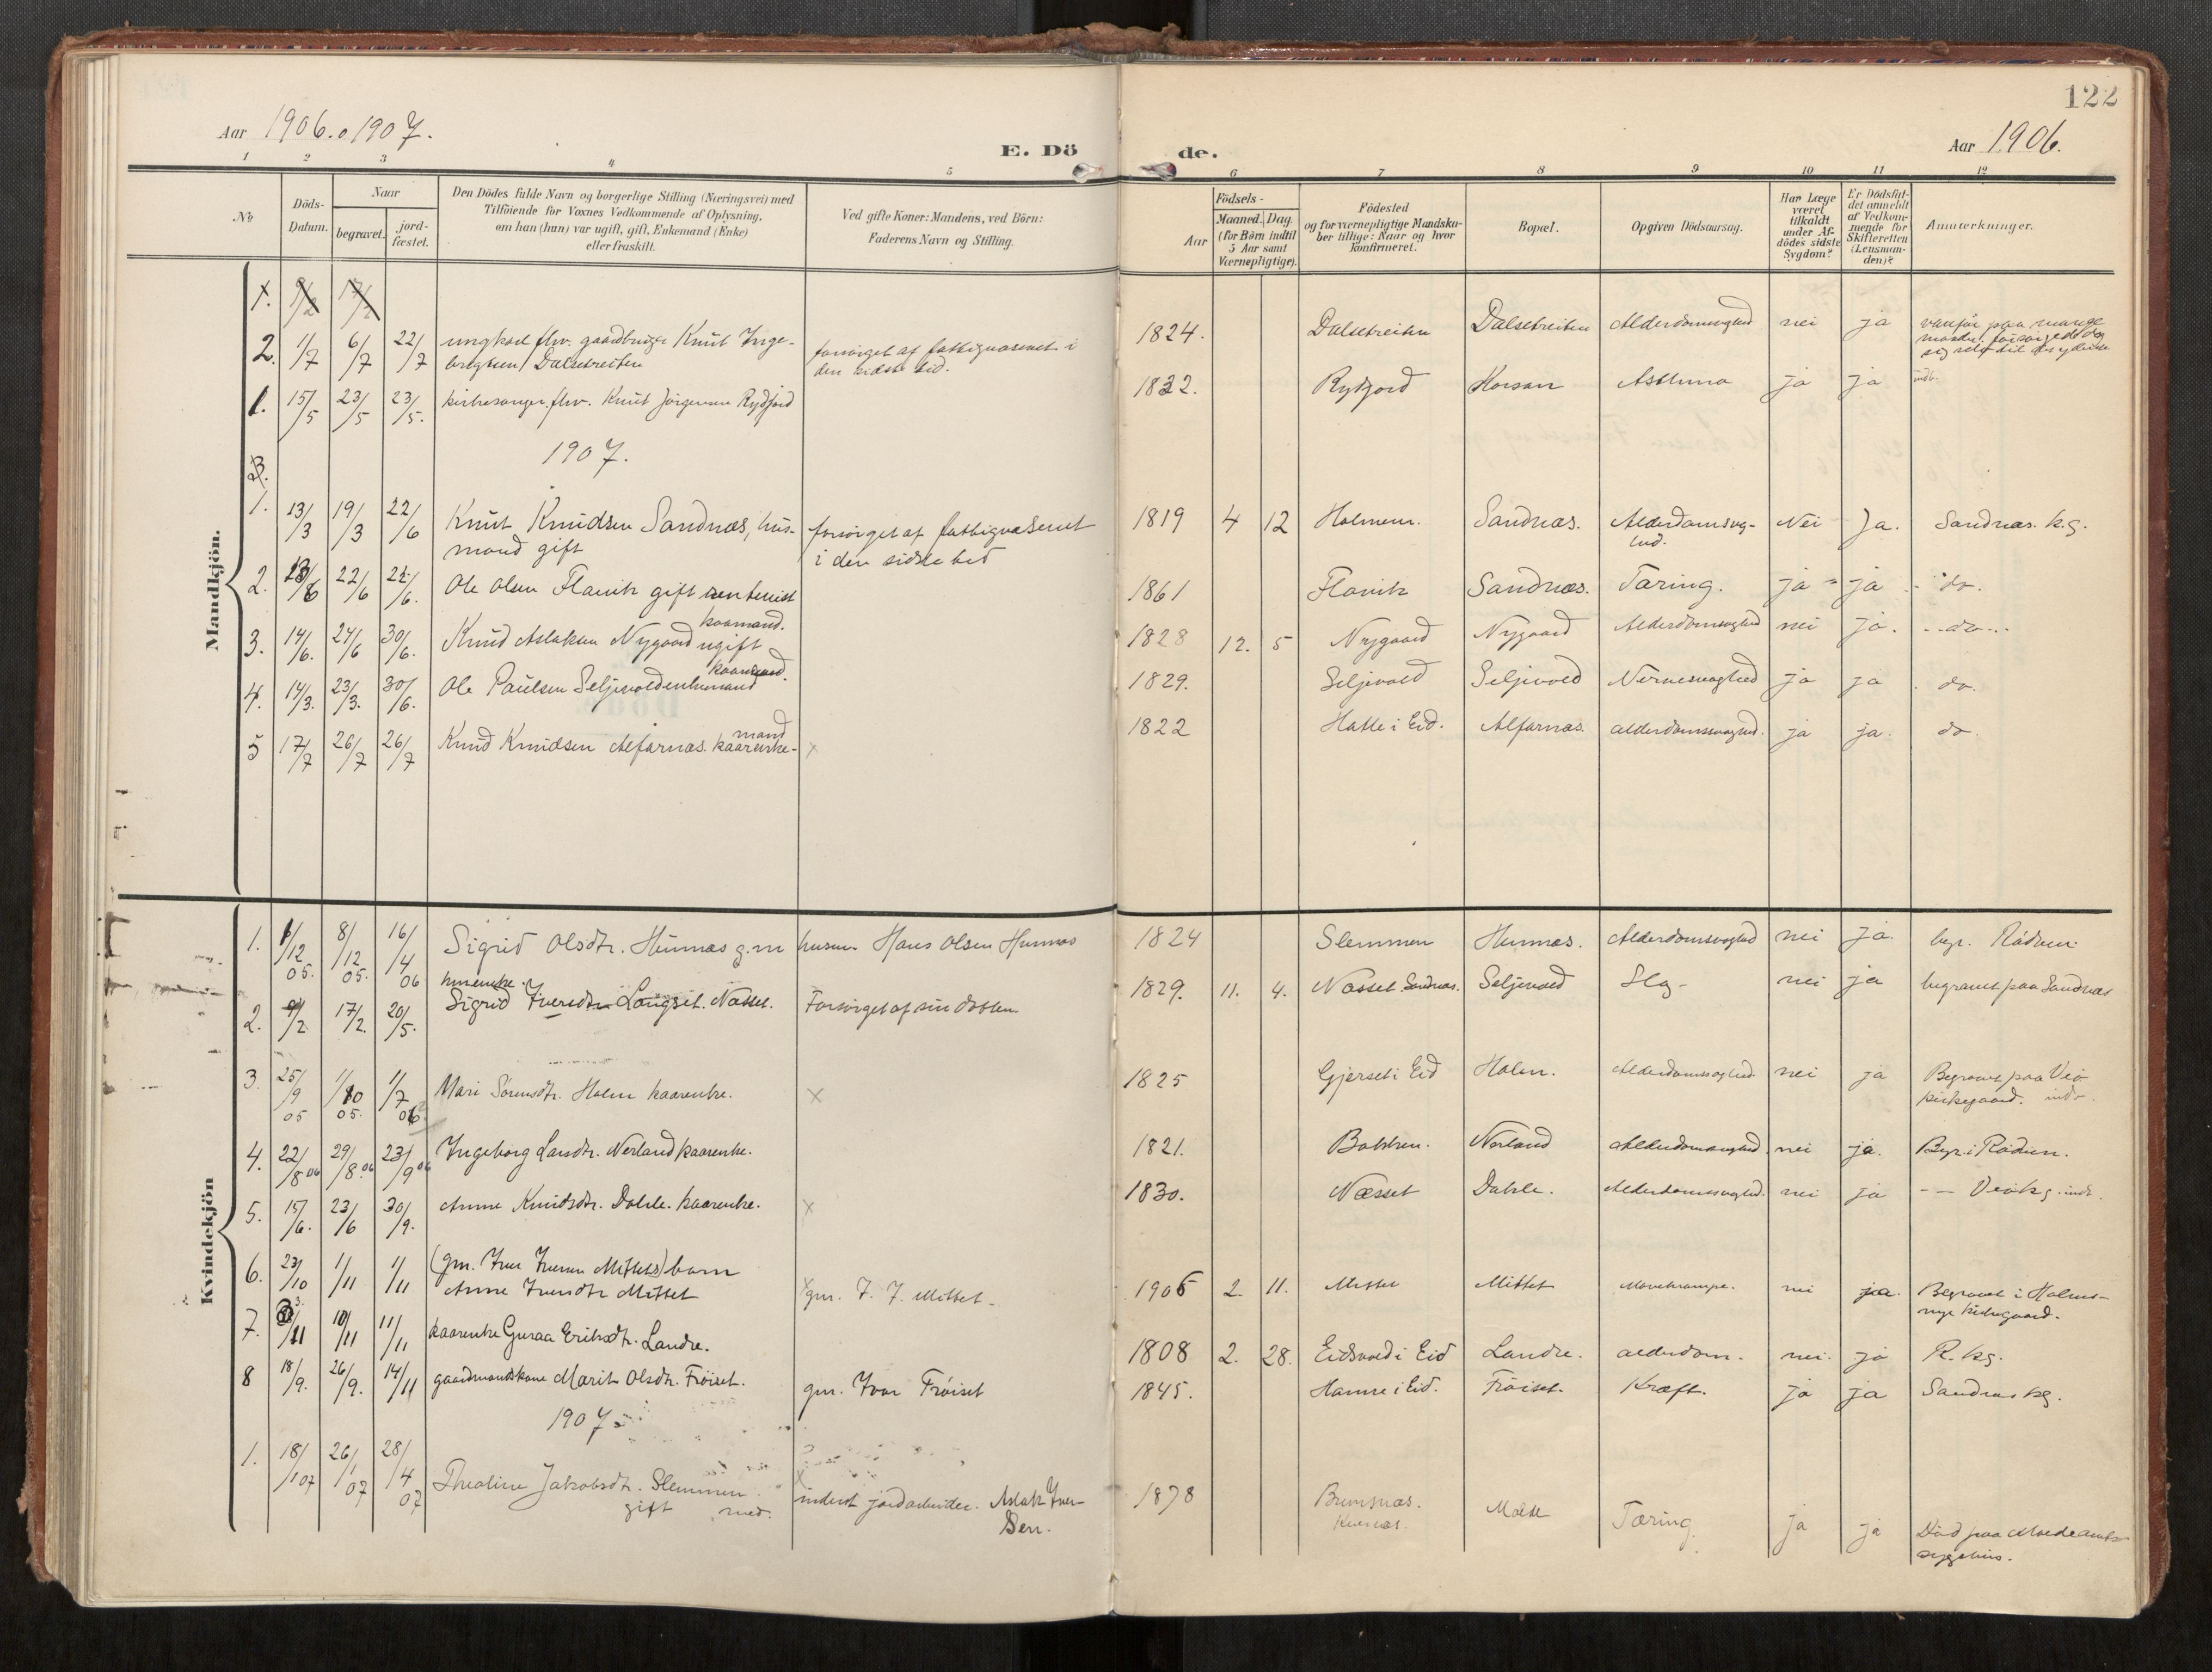 122
Aar 1906. o 1907.
Aar 1906.
E. Dö de.
1 2 3 4 5 6 7 8 9 10 11 12
No
Döds-Datum.
Naar
begravet.
jord-fæstet.
Den Dödes fulde Navn og borgerlige Stilling (Næringsvei) med
Tilföiende for Voxnes Vedkommende af Oplysning,
om han (hun) var ugift, gift, Enkemand (Enke)
eller fraskilt.
Ved gifte Koner: Mandens, ved Börn:
Faderens Navn og Stilling.
Födsels-
Aar
Maaned. Dag.
(for Börn indtil
5 Aar samt
Værnepligtige).
Födested
og for værnepligtige Mandska-
ber tillige: Naar og hvor
konfirmeret.
Bopæl.
Opgiven Dödsaarsag.
Har Læge
været
tilkaldt
under Af-
dödes sidste
Sygdom?
Er Dödsfal-
det anmeldt
af Vedkom-
mende for
Skifteretten
(Lensman-
den)?
Anmerkninger.
Mandkjön.
2. 1/7 6/7 22/7 ungkarl fhv. gaardbruger Knut Inge-
brigtsen Dalsetreiten
forsørget af fattigvæsenet i
den sidste tid.
1824. Dalsetreiten Dalsetreiten Alderdomsvaghed nei ja vanfør paa mange
1. 15/5 23/5 23/5. kirkesanger fhv. Knut Jørgensen Rydjord
1832. Rydjord Korsan Asthma ja ja indb.
1907.
1. 13/3 19/3 22/6 Knut Knudsen Sandnæs, hus-
mand gift
forsørget af fattigvæsenet
i den sidste tid
1819 4 12 Holmem. Sandnæs. Alderdomsvag-
hed. Nei Ja. Sandnæs. k.g.
2. 13/6 22/6 22/6. Ole Olsen Flovik gift
1861 Flovik Sandnæs. Tæring. ja ja do.
kaarmand.
3. 14/6. 24/6 30/6. Knud Aslaksen Nygaard ugift
1828 12. 5 Nygaard Nygaard Alderdomsvaghed nei ja. do
kaarmand.
4. 14/3. 23/3. 30/6. Ole Paulsen Seljevold enkemand
1829. Seljevold Seljevold Nervesvaghed ja ja do.
mand
5 17/7 26/7 26/7 Knud Knudsen Alfarnæs. kaarenke-
1822 Hatle i Eid. Alfarnæs. alderdomssvaghed. ja ja. do.
Kvindekjön
1. 1/12 05. 8/12 05. 16/4 06 Sigrid Olsdtr. Hunnæs g. m husm Hans Olsen Hunnæs
1824 Slemmen Hunnæs. Alderdomsvaghed nei ja. begr. Rødven.
husenke.
2. 9/2. 17/2. 20/5. Sigrid Iversdtr Langset. Næsset. Forsørget af sin datter
1829. 11. 4. Næsset Sandnæs. Seljevold Slag nei ja begravet paa Sandnæs
3. 25/9 05 1/10 05. 1/7 06 Mari Sørensdtr. Holm kaarenke. ×
1825 Gjerset i Eid Holm. Alderdomssvaghed nei ja Begravet paa Veø
kirkegaard. indb.
4. 22/8 06 29/8. 06 23/9 06 Ingeborg Larsdtr. Nerland kaarenke.
1821. Bakken. Nerland Alderdomsvaghed. nei ja. Begr. i Rødven.
5. 15/6. 23/6 30/9. Anne Knudsdtr. Dahle. kaarenke. ×
1830. Næsset Dahle. Alderdomssvaghed. nei ja -- Veøkg. indb.
(gm. Iver Iversen Mittets) barn
6. 23/10 1/11 1/11 Anne Iversdtr Mittet
gm. I. I. Mittet.
1906 2. 11. Mittet Mittet Mavekrampe. nei ja. Begravet i Holms-
nye kirkegaard.
7. 3/11 10/11 11/11 kaarenke Guraa Eriksdtr. Landre.
1808 2. 28. Eidsvold i Eid Landre. alderdom. nei. ja R. kg.
8 18/9. 26/9. 14/11 gaardmandskone Marit Olsdtr. Frøiset. gm. Ivar Frøiset
1845. Hamre i Eid. Frøiset. Kræft. ja ja Sandnæs kg.
1907.
1. 18/1 07 26/1 07 28/4 07 Thealine Jakobsdtr. Slemmen
gift med.
inderst jordarbeider. Aslak Iver-
sen.
1878 Bremsnæs.
Kvernæs.
Molde Tæring ja ja Død paa Molde amts
sygehus.